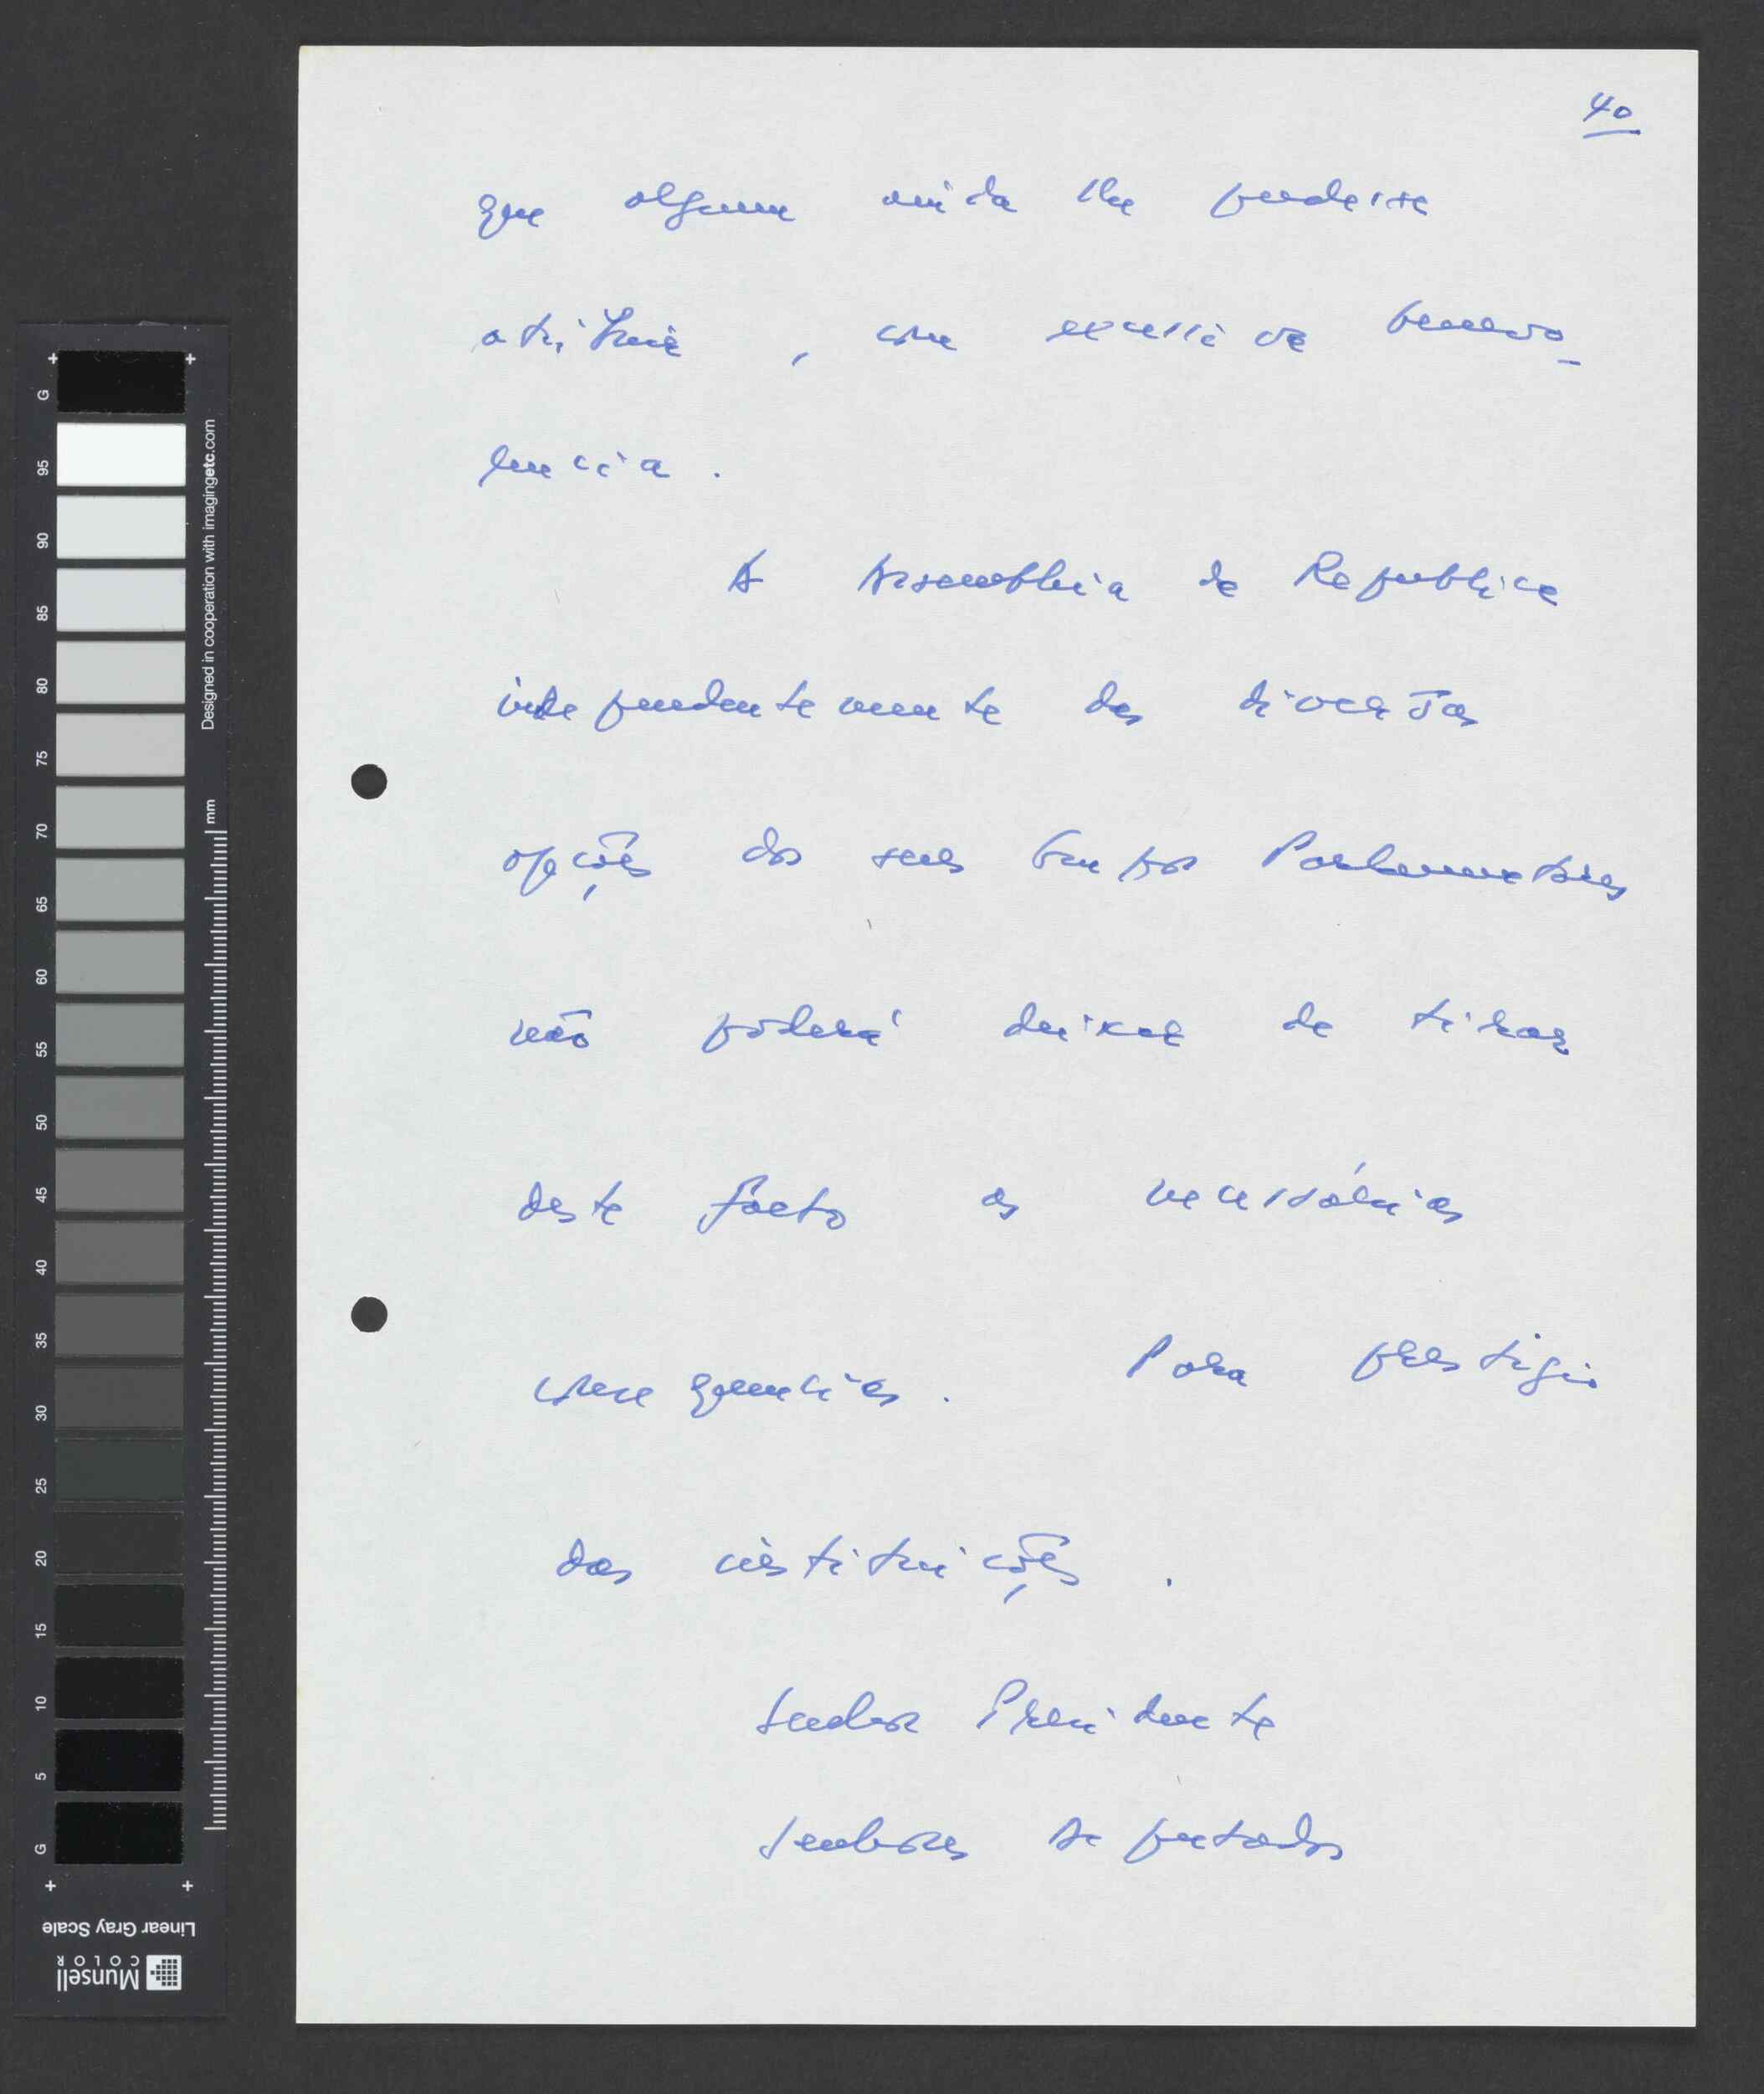 40
que alguem ainda lhe pudesse
atribuir, com excessiva benevo_
lencia.
A Assembleia da Republica
independentemente das diversas
opções dos seus Grupos Parlamentares
não poderá deixar de tirar
deste facto as necessárias
consequencias. Para prestigio
das instituições.
Senhor Presidente
Senhores Deputados
G
95
90
85
80
75
70
65
60
55
50
45
40
35
30
25
20
15
10
5
G
Designed in cooperation with imagingetc.com
mm
Linear Gray Scale
Munsell
COLOR